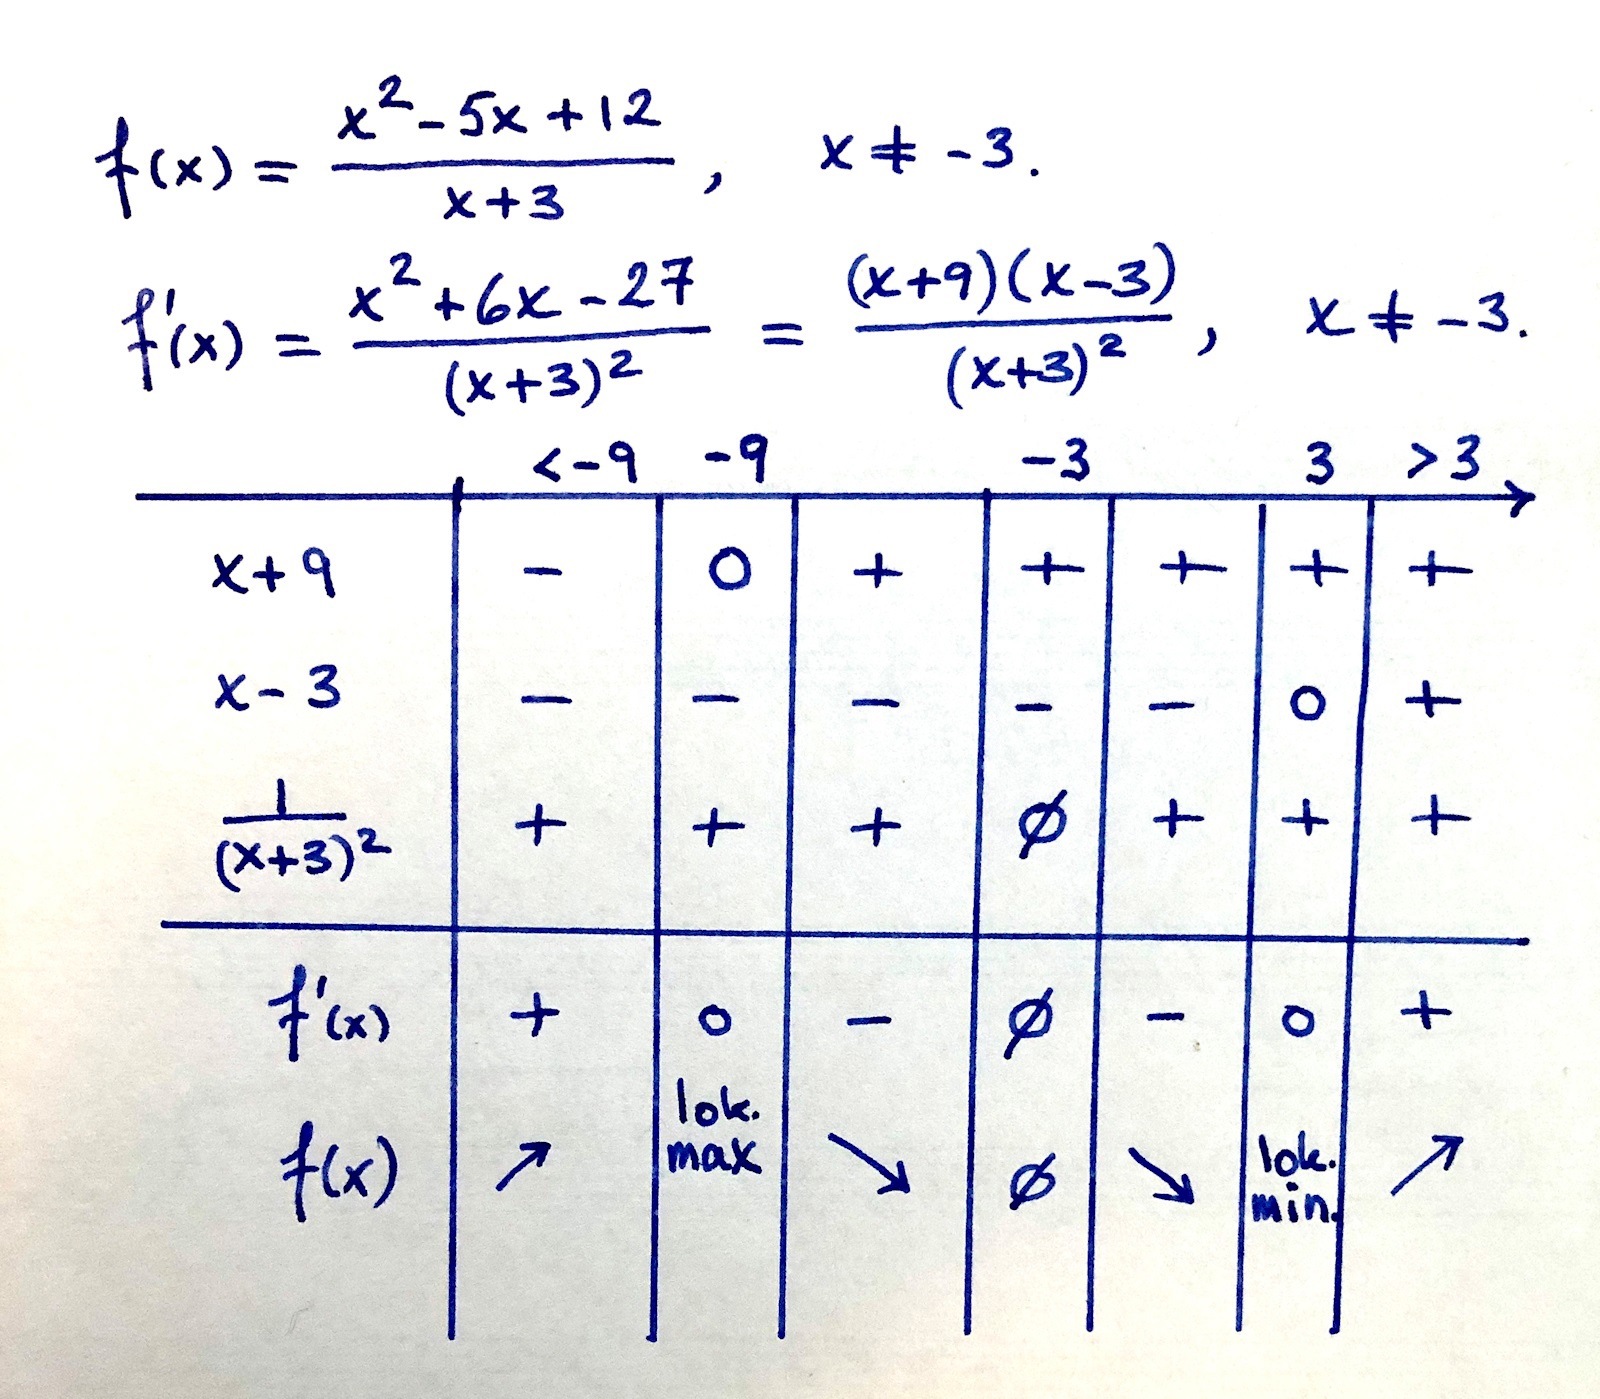 f(x) = (x² - 5x + 12)/(x + 3), x ≠ -3.
f'(x) = (x² + 6x - 27)/(x+3)² = (x+9)(x-3)/(x+3)², x ≠ -3.
<-9 -9 -3 3 >3
x+9 - 0 + + + + +
x-3 - - - - - 0 +
1/(x+3)² + + + ∅ + + +
f'(x) + 0 - ∅ - 0 +
f(x) ↗ lok. max ↘ ∅ ↘ lok. min. ↗